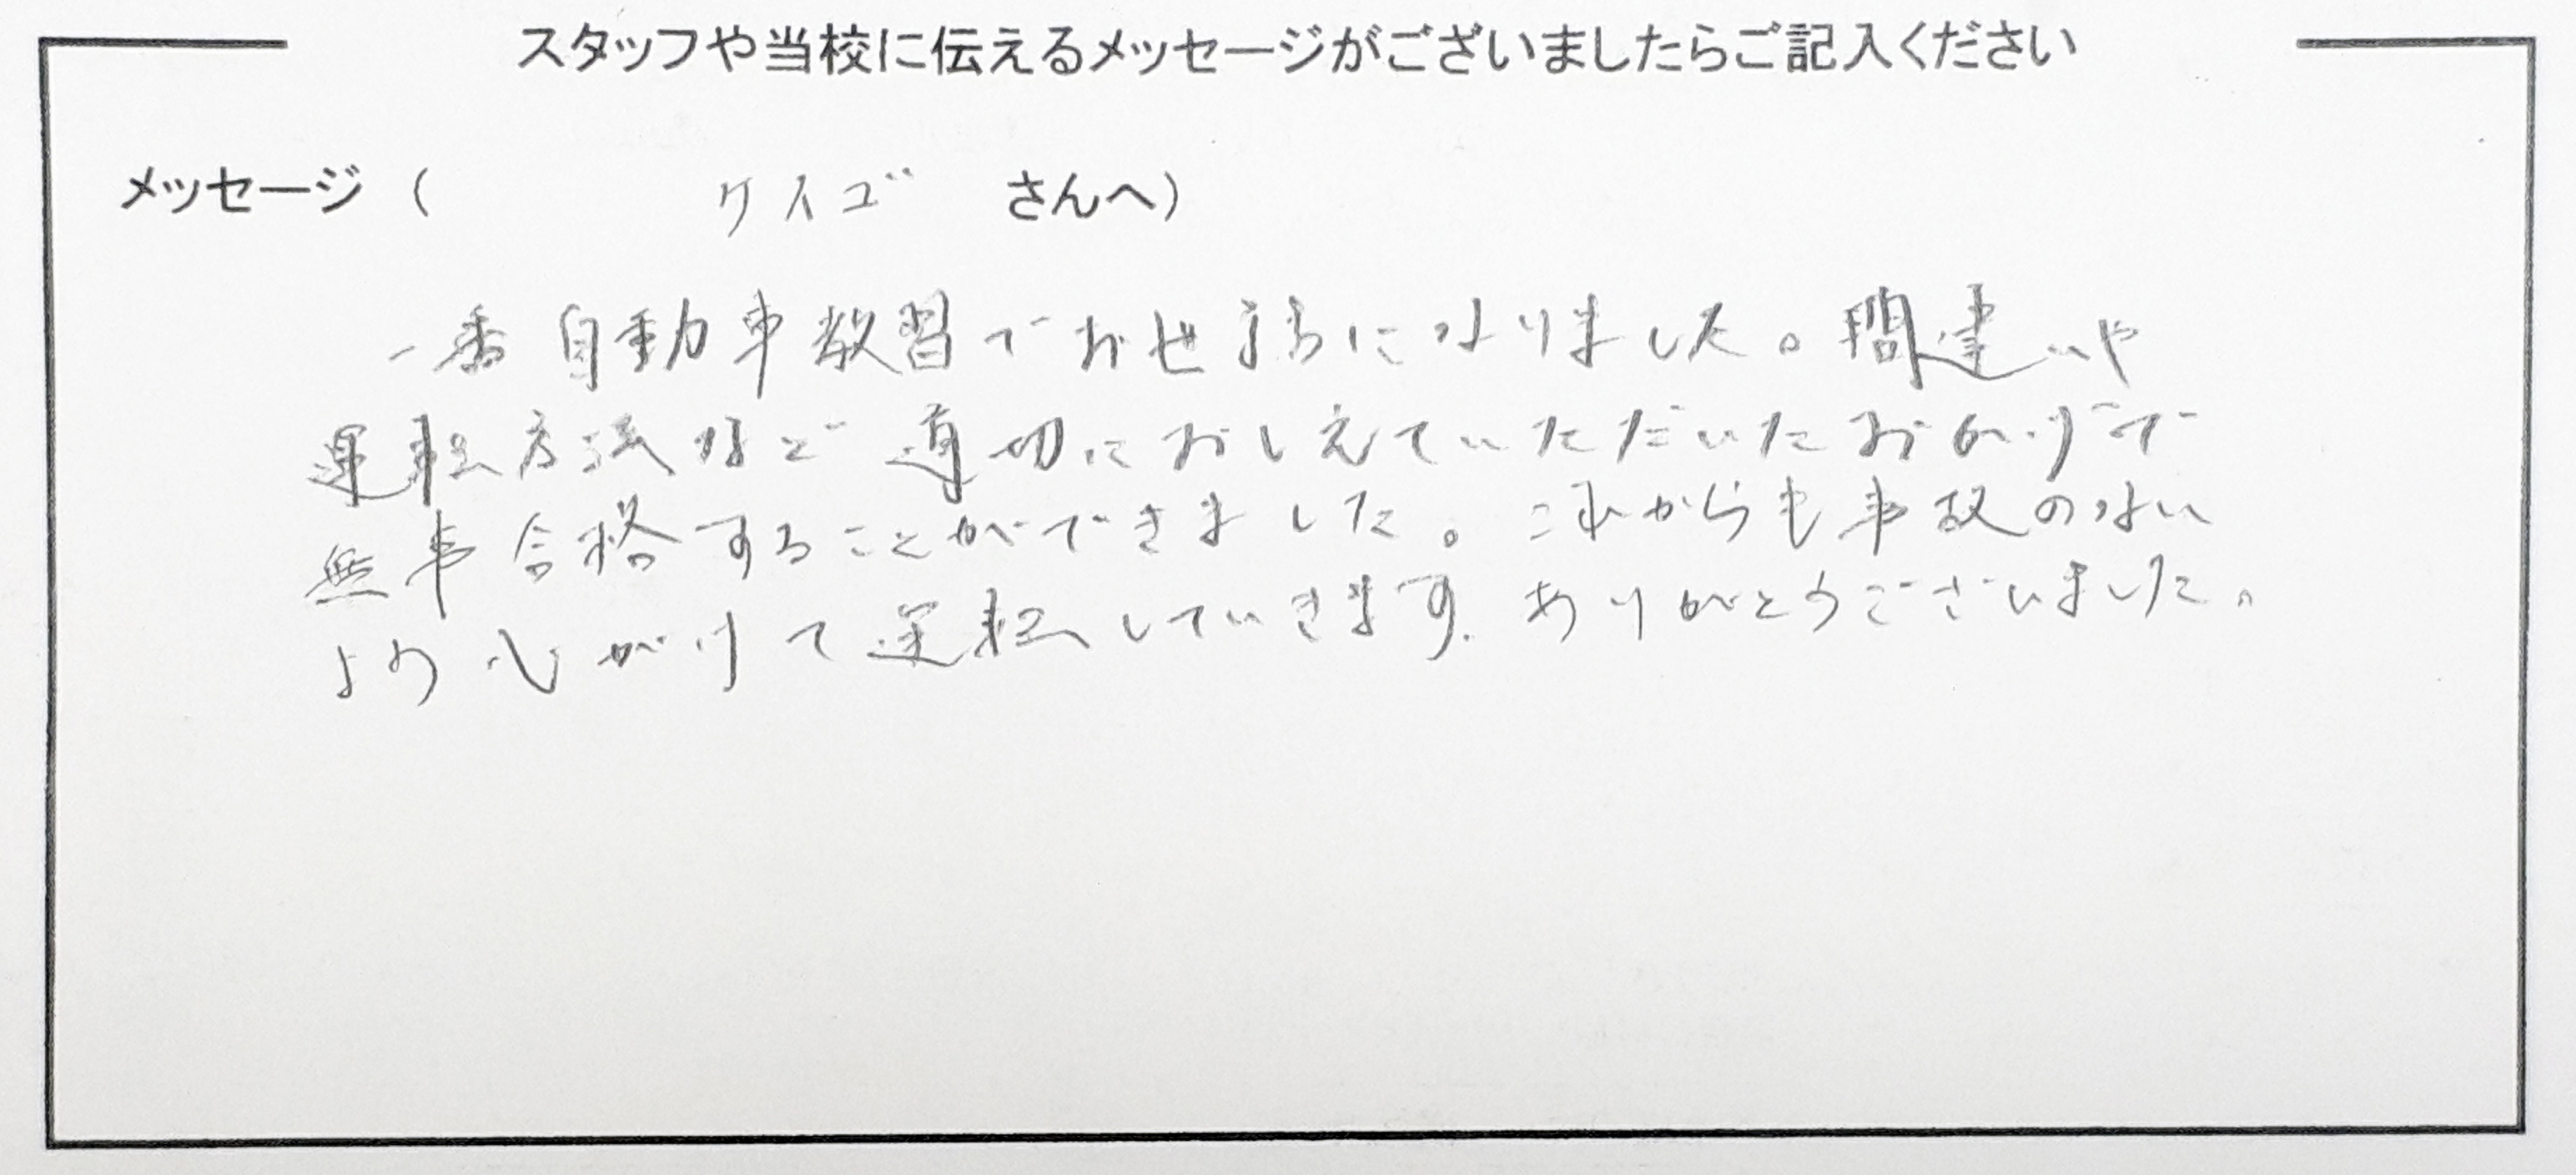 スタッフや当校に伝えるメッセージがございましたらご記入ください
メッセージ（ ケイゴ さんへ）
一番自動車教習でお世話になりました。間違いや
運転方法など適切におしえていただいたおかげで
無事合格することができました。これからも事故のない
よう心がけて運転していきます。ありがとうございました。